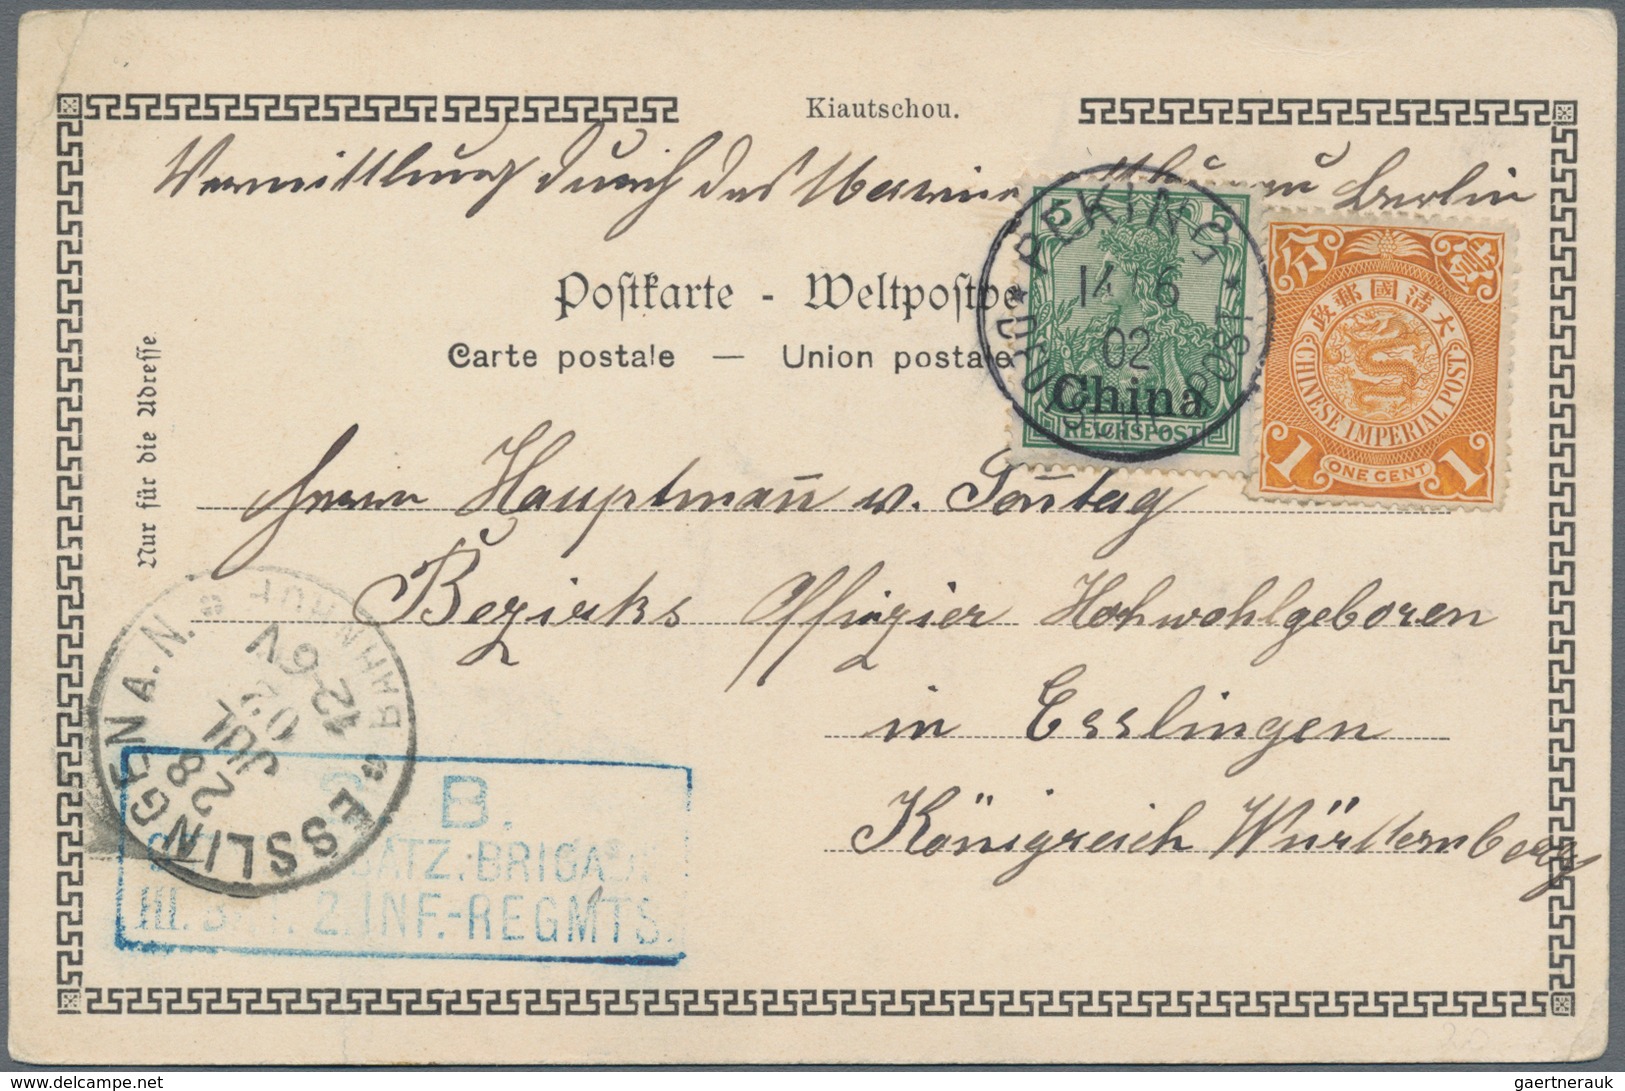 Kiautschou.
Vermittlung durch das Marine Berlin
5 5
PEKING
14 6
02
DEUTSCHE POST
China
REICHSPOST
分 壹
大清國郵政
CHINESE IMPERIAL POST.
1 ONE CENT 1
Postkarte - Weltpostve
Carte postale — Union postale
Nur für die Adresse
Herrn Hauptmañ v. Soñtag
Bezirks Offizier Hochwohlgeboren
in Esslingen
Königreich Württemberg
ESSLINGEN A.N.
BAHNHOF
28 JUL 02
12-6V
B.
SATZ.-BRIGADE
III. BAT. 2. INF.-REGMTS.
gaertnerauk@delcampe.net